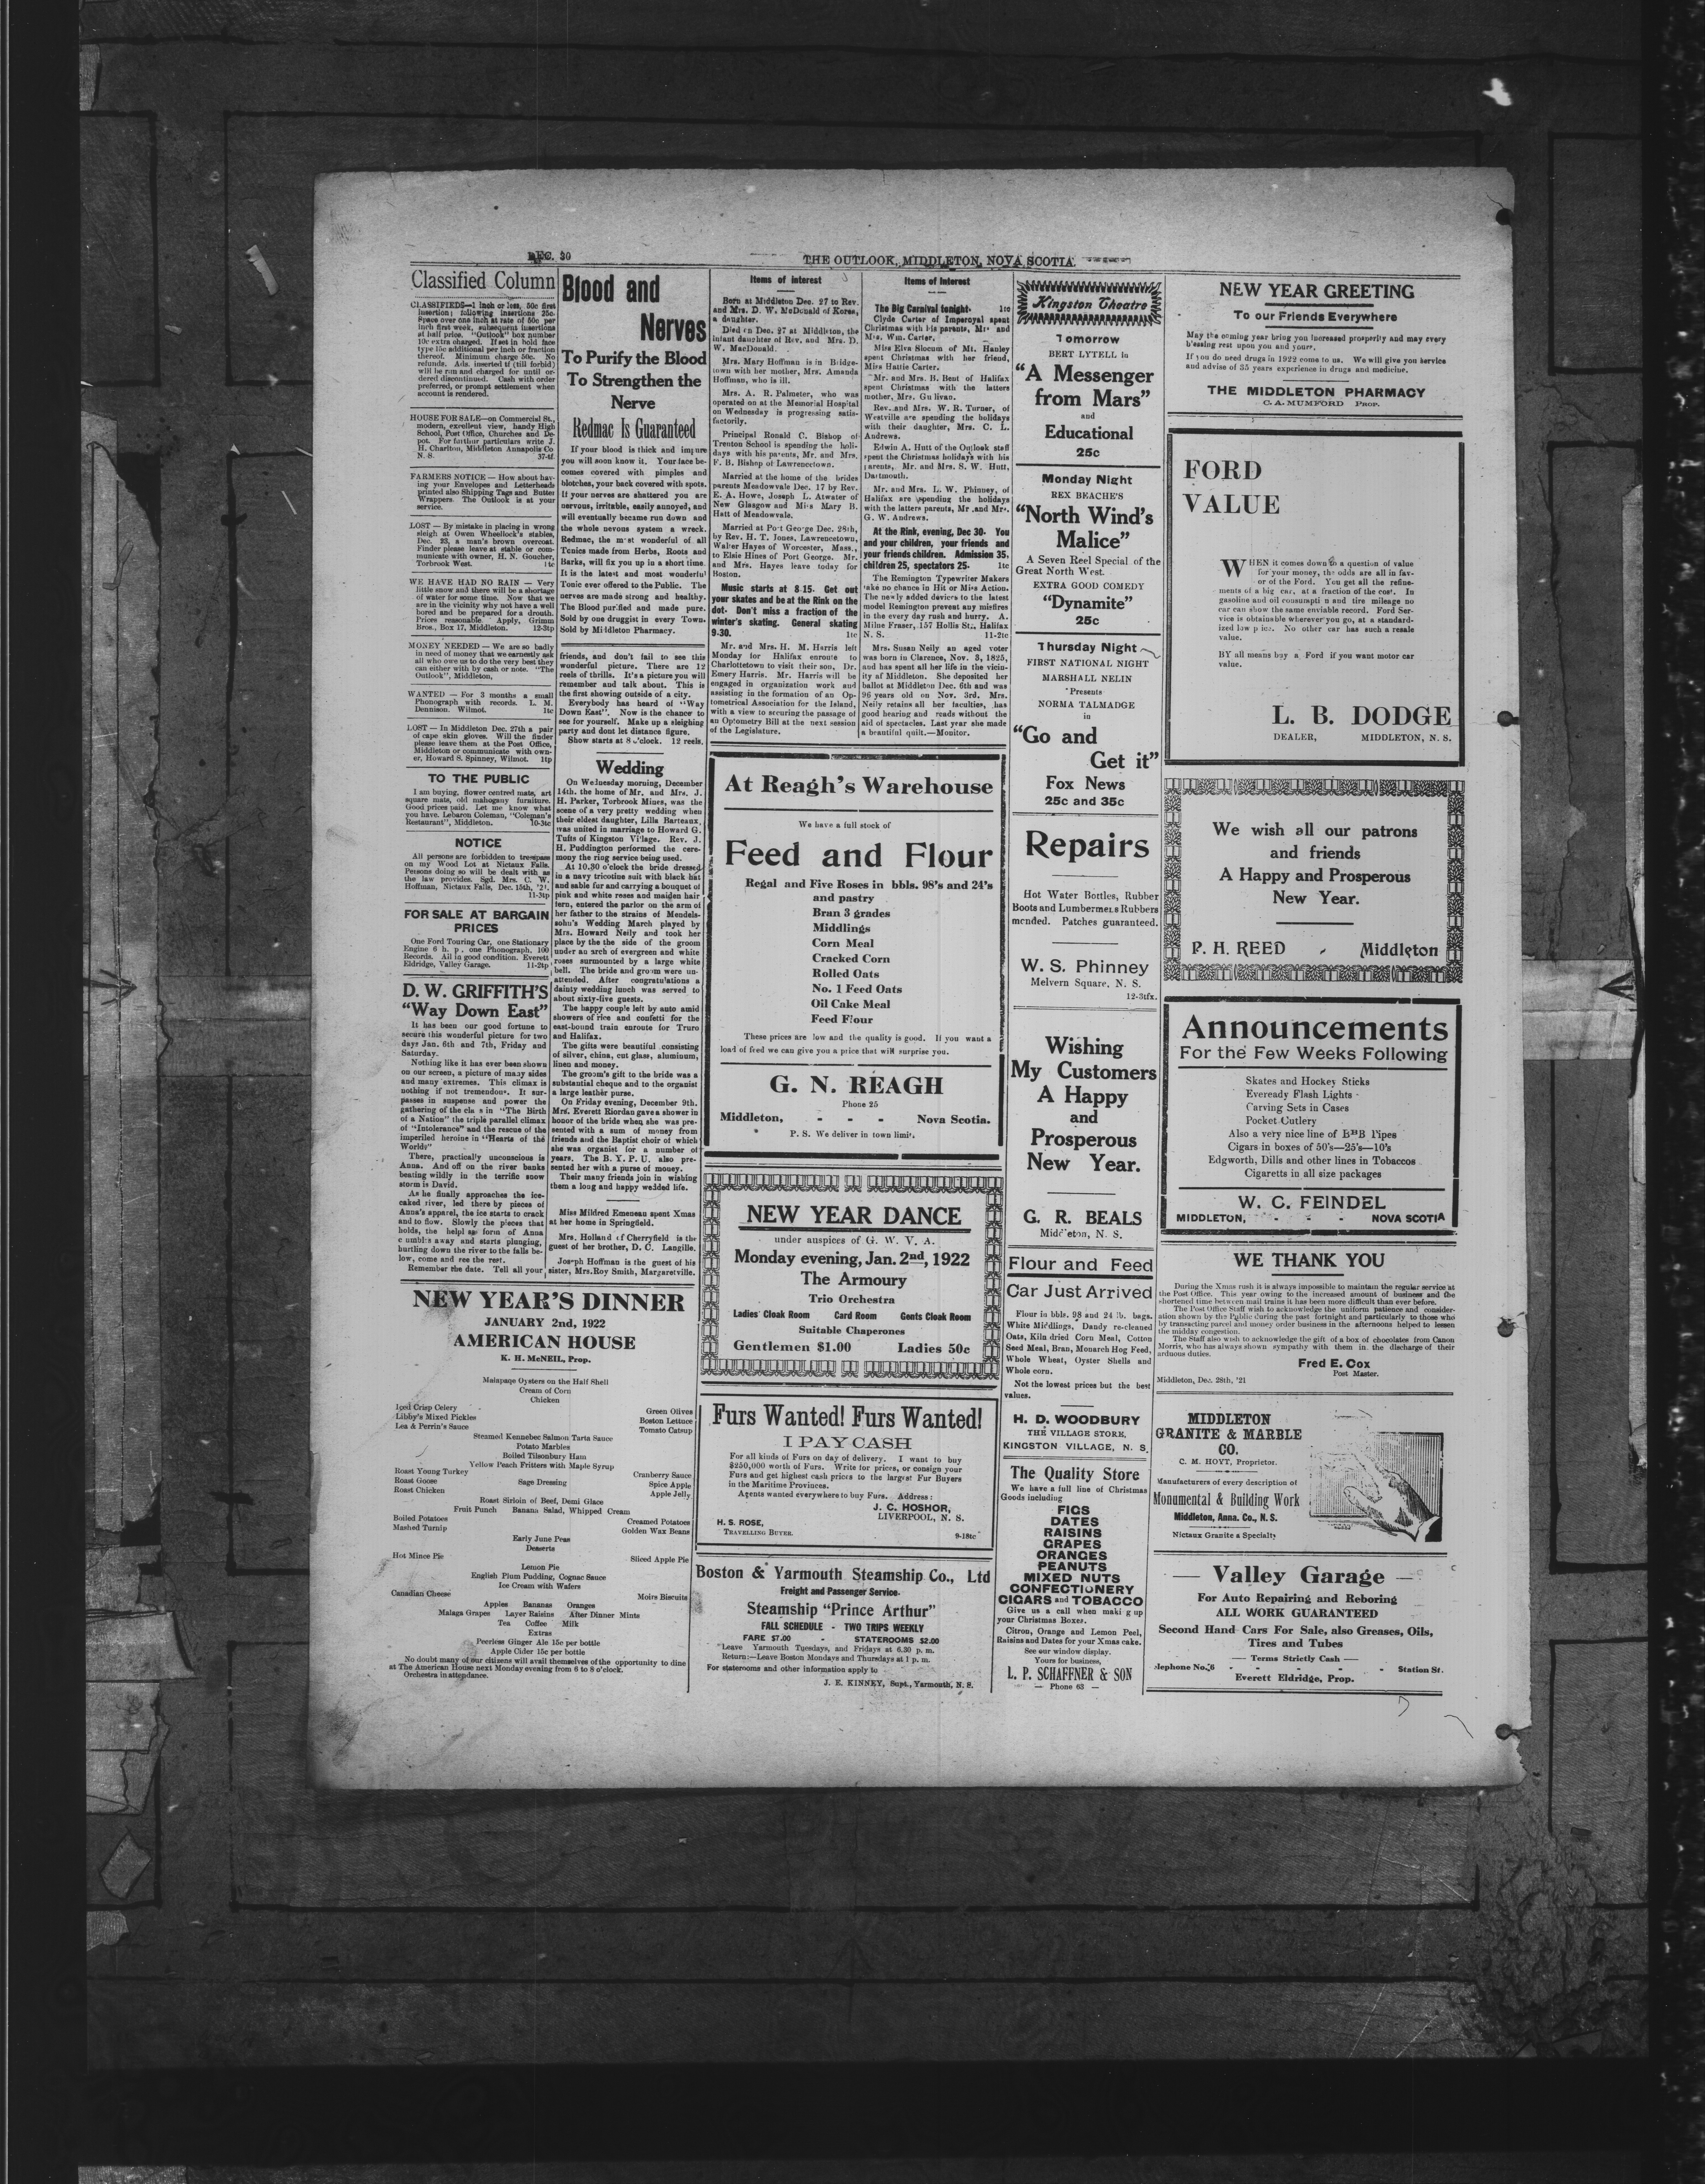 DEC. 30
THE OUTLOOK, MIDDLETON, NOVA SCOTIA.
Classified Column
CLASSIFIEDS—1 inch or less, 50c first
insertion; following insertions 25c.
Space over one inch at rate of 50c per
inch first week, subsequent insertions
at half price. "Outlook" box number
10c extra charged. If set in bold face
type 15c additional per inch or fraction
thereof. Minimum charge 50c. No
refunds. Ads. inserted tf (till forbid)
will be run and charged for until or-
dered discontinued. Cash with order
preferred, or prompt settlement when
account is rendered.
HOUSE FOR SALE—on Commercial St.,
modern, excellent view, handy High
School, Post Office, Churches and De-
pot. For further particulars write J.
H. Charlton, Middleton Annapolis Co
N. S. 37-tf.
FARMERS NOTICE — How about hav-
ing your Envelopes and Letterheads
printed also Shipping Tags and Butter
Wrappers. The Outlook is at your
service.
LOST — By mistake in placing in wrong
sleigh at Owen Wheellock's stables,
Dec. 23, a man's brown overcoat.
Finder please leave at stable or com-
municate with owner, H. N. Goucher,
Torbrook West. 1tc
WE HAVE HAD NO RAIN — Very
little snow and there will be a shortage
of water for some time. Now that we
are in the vicinity why not have a well
bored and be prepared for a drouth.
Prices reasonable. Apply, Grimm
Bros., Box 17, Middleton. 12-3tp
MONEY NEEDED — We are so badly
in need of money that we earnestly ask
all who owe us to do the very best they
can either with by cash or note. "The
Outlook", Middleton,
WANTED — For 3 months a small
Phonograph with records. L. M.
Dennison. Wilmot. 1tc
LOST — In Middleton Dec. 27th a pair
of cape skin gloves. Will the finder
please leave them at the Post Office,
Middleton or communicate with own-
er, Howard S. Spinney, Wilmot. 1tp
TO THE PUBLIC
I am buying, flower centred mats, art
square mats, old mahogany furniture.
Good prices paid. Let me know what
you have. Lebaron Coleman, "Coleman's
Restaurant", Middleton. 10-3tc
NOTICE
All persons are forbidden to trespass
on my Wood Lot at Nictaux Falls.
Persons doing so will be dealt with as
the law provides. Sgd. Mrs. C. W.
Hoffman, Nictaux Falls, Dec. 15th, '21.
11-3tp
FOR SALE AT BARGAIN
PRICES
One Ford Touring Car, one Stationary
Engine 6 h. p. one Phonograph. 100
Records. All in good condition. Everett
Eldridge, Valley Garage. 11-2tp
D. W. GRIFFITH'S
"Way Down East"
It has been our good fortune to
secure this wonderful picture for two
days Jan. 6th and 7th, Friday and
Saturday.
Nothing like it has ever been shown
on our screen, a picture of many sides
and many extremes. This climax is
nothing if not tremendous. It sur-
passes in suspense and power the
gathering of the clans in "The Birth
of a Nation" the triple parallel climax
of "Intolerance" and the rescue of the
imperiled heroine in "Hearts of the
Worlds"
There, practically unconscious is
Anna. And off on the river banks
beating wildly in the terrific snow
storm is David.
As he finally approaches the ice-
caked river, led there by pieces of
Anna's apparel, the ice starts to crack
and to flow. Slowly the pieces that
holds, the helpless form of Anna
crumbles away and starts plunging,
hurtling down the river to the falls be-
low, come and see the rest.
Remember the date. Tell all your
Blood and
Nerves
To Purify the Blood
To Strengthen the
Nerve
Redmac Is Guaranteed
If your blood is thick and impure
you will soon know it. Your face be-
comes covered with pimples and
blotches, your back covered with spots.
If your nerves are shattered you are
nervous, irritable, easily annoyed, and
will eventually became run down and
the whole nevous system a wreck.
Redmac, the most wonderful of all
Tonics made from Herbs, Roots and
Barks, will fix you up in a short time.
It is the latest and most wonderful
Tonic ever offered to the Public. The
nerves are made strong and healthy.
The Blood purified and made pure.
Sold by one druggist in every Town.
Sold by Middleton Pharmacy.
friends, and don't fail to see this
wonderful picture. There are 12
reels of thrills. It's a picture you will
remember and talk about. This is
the first showing outside of a city.
Everybody has heard of "Way
Down East". Now is the chance to
see for yourself. Make up a sleighing
party and dont let distance figure.
Show starts at 8 o'clock. 12 reels.
Wedding
On Wednesday morning, December
14th. the home of Mr. and Mrs. J.
H. Parker, Torbrook Mines, was the
scene of a very pretty wedding when
their eldest daughter, Lilla Barteaux,
was united in marriage to Howard G.
Tufts of Kingston Village. Rev. J.
H. Puddington performed the cere-
mony the ring service being used.
At 10.30 o'clock the bride dressed
in a navy tricotine suit with black hat
and sable fur and carrying a bouquet of
pink and white roses and maiden hair
fern, entered the parlor on the arm of
her father to the strains of Mendels-
sohn's Wedding March played by
Mrs. Howard Neily and took her
place by the the side of the groom
under an arch of evergreen and white
roses surmounted by a large white
bell. The bride and groom were un-
attended. After congratulations a
dainty wedding lunch was served to
about sixty-five guests.
The happy couple left by auto amid
showers of rice and confetti for the
east-bound train enroute for Truro
and Halifax.
The gifts were beautiful consisting
of silver, china, cut glass, aluminum,
linen and money.
The groom's gift to the bride was a
substantial cheque and to the organist
a large leather purse.
On Friday evening, December 9th.
Mrs. Everett Riordan gave a shower in
honor of the bride when she was pre-
sented with a sum of money from
friends and the Baptist choir of which
she was organist for a number of
years. The B. Y. P. U. also pre-
sented her with a purse of money.
Their many friends join in wishing
them a long and happy wedded life.
Miss Mildred Emeneau spent Xmas
at her home in Springfield.
Mrs. Holland of Cherryfield is the
guest of her brother, D. C. Langille.
Joseph Hoffman is the guest of his
sister, Mrs. Roy Smith, Margaretville.
NEW YEAR'S DINNER
JANUARY 2nd, 1922
AMERICAN HOUSE
K. H. McNEIL, Prop.
Malapaqe Oysters on the Half Shell
Cream of Corn
Chicken
Iced Crisp Celery Green Olives
Libby's Mixed Pickles Boston Lettuce
Lea & Perrin's Sauce Tomato Catsup
Steamed Kennebec Salmon Tarta Sauce
Potato Marbles
Boiled Tilsonbury Ham
Yellow Peach Fritters with Maple Syrup
Roast Young Turkey Cranberry Sauce
Roast Goose Sage Dressing Spice Apple
Roast Chicken Apple Jelly
Roast Sirloin of Beef, Demi Glace
Fruit Punch Banana Salad, Whipped Cream
Boiled Potatoes Creamed Potatoes
Mashed Turnip Golden Wax Beans
Early June Peas
Desserts
Hot Mince Pie Sliced Apple Pie
Lemon Pie
English Plum Pudding, Cognac Sauce
Ice Cream with Wafers
Canadian Cheese Moirs Biscuits
Apples Bananas Oranges
Malaga Grapes Layer Raisins After Dinner Mints
Tea Coffee Milk
Extras
Peerless Ginger Ale 15c per bottle
Apple Cider 15c per bottle
No doubt many of our citizens will avail themselves of the opportunity to dine
at The American House next Monday evening from 6 to 8 o'clock.
Orchestra in attendance.
Items of interest
Born at Middleton Dec. 27 to Rev.
and Mrs. D. W. McDonald of Korea,
a daughter.
Died on Dec. 27 at Middleton, the
infant daughter of Rev. and Mrs. D.
W. MacDonald.
Mrs. Mary Hoffman is in Bridge-
town with her mother, Mrs. Amanda
Hoffman, who is ill.
Mrs. A. R. Palmeter, who was
operated on at the Memorial Hospital
on Wednesday is progressing satis-
factorily.
Principal Ronald C. Bishop of
Trenton School is spending the holi-
days with his parents, Mr. and Mrs.
F. B. Bishop of Lawrencetown.
Married at the home of the brides
parents Meadowvale Dec. 17 by Rev.
E. A. Howe, Joseph L. Atwater of
New Glasgow and Miss Mary B.
Hatt of Meadowvale.
Married at Port George Dec. 28th,
by Rev. H. T. Jones, Lawrencetown,
Walter Hayes of Worcester, Mass.,
to Elsie Hines of Port George. Mr.
and Mrs. Hayes leave today for
Boston.
Music starts at 8-15. Get out
your skates and be at the Rink on the
dot. Don't miss a fraction of the
winter's skating. General skating
9-30. 1tc
Mr. and Mrs. H. M. Harris left
Monday for Halifax enroute to
Charlottetown to visit their son, Dr.
Emery Harris. Mr. Harris will be
engaged in organization work and
assisting in the formation of an Op-
tometrical Association for the Island,
with a view to securing the passage of
an Optometry Bill at the next session
of the Legislature.
Items of Interest
The Big Carnival tonight. 1tc
Clyde Carter of Imperoyal spent
Christmas with his parents, Mr. and
Mrs. Wm. Carter.
Miss Elva Slocum of Mt. Hanley
spent Christmas with her friend,
Miss Hattie Carter.
Mr. and Mrs. B. Bent of Halifax
spent Christmas with the latters
mother, Mrs. Gullivan.
Rev. and Mrs. W. R. Turner, of
Westville are spending the holidays
with their daughter, Mrs. C. L.
Andrews.
Edwin A. Hutt of the Outlook staff
spent the Christmas holidays with his
parents, Mr. and Mrs. S. W. Hutt,
Dartmouth.
Mr. and Mrs. L. W. Phinney, of
Halifax are spending the holidays
with the latters parents, Mr. and Mrs.
G. W. Andrews.
At the Rink, evening, Dec 30. You
and your children, your friends and
your friends children. Admission 35,
children 25, spectators 25. 1tc
The Remington Typewriter Makers
take no chance in Hit or Miss Action.
The newly added devices to the latest
model Remington prevent any misfires
in the every day rush and hurry. A.
Milne Fraser, 157 Hollis St., Halifax
N. S. 11-2tc
Mrs. Susan Neily an aged voter
was born in Clarence, Nov. 3, 1825,
and has spent all her life in the vicin-
ity af Middleton. She deposited her
ballot at Middleton Dec. 6th and was
96 years old on Nov. 3rd. Mrs.
Neily retains all her faculties, has
good hearing and reads without the
aid of spectacles. Last year she made
a beautiful quilt.—Monitor.
At Reagh's Warehouse
We have a full stock of
Feed and Flour
Regal and Five Roses in bbls. 98's and 24's
and pastry
Bran 3 grades
Middlings
Corn Meal
Cracked Corn
Rolled Oats
No. 1 Feed Oats
Oil Cake Meal
Feed Flour
These prices are low and the quality is good. If you want a
load of feed we can give you a price that will surprise you.
G. N. REAGH
Phone 25
Middleton, - - - Nova Scotia.
P. S. We deliver in town limits.
NEW YEAR DANCE
under auspices of G. W. V. A.
Monday evening, Jan. 2nd, 1922
The Armoury
Trio Orchestra
Ladies' Cloak Room Card Room Gents Cloak Room
Suitable Chaperones
Gentlemen $1.00 Ladies 50c
Furs Wanted! Furs Wanted!
I PAY CASH
For all kinds of Furs on day of delivery. I want to buy
$250,000 worth of Furs. Write for prices, or consign your
Furs and get highest cash prices to the largest Fur Buyers
in the Maritime Provinces.
Agents wanted everywhere to buy Furs. Address:
J. C. HOSHOR,
LIVERPOOL, N. S.
H. S. ROSE,
TRAVELLING BUYER. 9-18tc
Boston & Yarmouth Steamship Co., Ltd
Freight and Passenger Service.
Steamship "Prince Arthur"
FALL SCHEDULE - TWO TRIPS WEEKLY
FARE $7.00 - STATEROOMS $2.00
Leave Yarmouth Tuesdays, and Fridays at 6.30 p. m.
Return:—Leave Boston Mondays and Thursdays at 1 p. m.
For staterooms and other information apply to
J. E. KINNEY, Supt., Yarmouth, N. S.
Kingston Theatre
Tomorrow
BERT LYTELL in
"A Messenger
from Mars"
and
Educational
25c
Monday Night
REX BEACHE'S
"North Wind's
Malice"
A Seven Reel Special of the
Great North West.
EXTRA GOOD COMEDY
"Dynamite"
25c
Thursday Night
FIRST NATIONAL NIGHT
MARSHALL NELIN
Presents
NORMA TALMADGE
in
"Go and
Get it"
Fox News
25c and 35c
Repairs
Hot Water Bottles, Rubber
Boots and Lumbermens Rubbers
mended. Patches guaranteed.
W. S. Phinney
Melvern Square, N. S.
12-3tfx.
Wishing
My Customers
A Happy
and
Prosperous
New Year.
G. R. BEALS
Middleton, N. S.
Flour and Feed
Car Just Arrived
Flour in bbls. 98 and 24 lb. bags.
White Middlings, Dandy re-cleaned
Oats, Kiln dried Corn Meal, Cotton
Seed Meal, Bran, Monarch Hog Feed,
Whole Wheat, Oyster Shells and
Whole corn.
Not the lowest prices but the best
values.
H. D. WOODBURY
THE VILLAGE STORE,
KINGSTON VILLAGE, N. S.
The Quality Store
We have a full line of Christmas
Goods including
FIGS
DATES
RAISINS
GRAPES
ORANGES
PEANUTS
MIXED NUTS
CONFECTIONERY
CIGARS and TOBACCO
Give us a call when making up
your Christmas Boxes.
Citron, Orange and Lemon Peel,
Raisins and Dates for your Xmas cake.
See our window display.
Yours for business,
L. P. SCHAFFNER & SON
— Phone 63 —
NEW YEAR GREETING
To our Friends Everywhere
May the coming year bring you increased prosperity and may every
blessing rest upon you and yours.
If you do need drugs in 1922 come to us. We will give you service
and advise of 35 years experience in drugs and medicine.
THE MIDDLETON PHARMACY
C. A. MUMFORD PROP.
FORD
VALUE
WHEN it comes down to a question of value
for your money, the odds are all in fav-
or of the Ford. You get all the refine-
ments of a big car, at a fraction of the cost. In
gasoline and oil consumption and tire mileage no
car can show the same enviable record. Ford Ser-
vice is obtainable wherever you go, at a standard-
ized low price. No other car has such a resale
value.
BY all means buy a Ford if you want motor car
value.
L. B. DODGE
DEALER, MIDDLETON, N. S.
We wish all our patrons
and friends
A Happy and Prosperous
New Year.
P. H. REED - Middleton
Announcements
For the Few Weeks Following
Skates and Hockey Sticks
Eveready Flash Lights
Carving Sets in Cases
Pocket Cutlery
Also a very nice line of BBB Pipes
Cigars in boxes of 50's—25's—10's
Edgworth, Dills and other lines in Tobaccos
Cigaretts in all size packages
W. C. FEINDEL
MIDDLETON, - - - NOVA SCOTIA
WE THANK YOU
During the Xmas rush it is always impossible to maintain the regular service at
the Post Office. This year owing to the increased amount of business and the
shortened time between mail trains it has been more difficult than ever before.
The Post Office Staff wish to acknowledge the uniform patience and consider-
ation shown by the Public during the past fortnight and particularly to those who
by transacting parcel and money order business in the afternoons helped to lessen
the midday congestion.
The Staff also wish to acknowledge the gift of a box of chocolates from Canon
Morris, who has always shown sympathy with them in the discharge of their
arduous duties.
Fred E. Cox
Post Master.
Middleton, Dec. 28th, '21
MIDDLETON
GRANITE & MARBLE
CO.
C. M. HOYT, Proprietor.
Manufacturers of every description of
Monumental & Building Work
Middleton, Anna. Co., N. S.
Nictaux Granite a Specialty
Valley Garage
For Auto Repairing and Reboring
ALL WORK GUARANTEED
Second Hand Cars For Sale, also Greases, Oils,
Tires and Tubes
— Terms Strictly Cash —
elephone No. 6 - - - - - Station St.
Everett Eldridge, Prop.